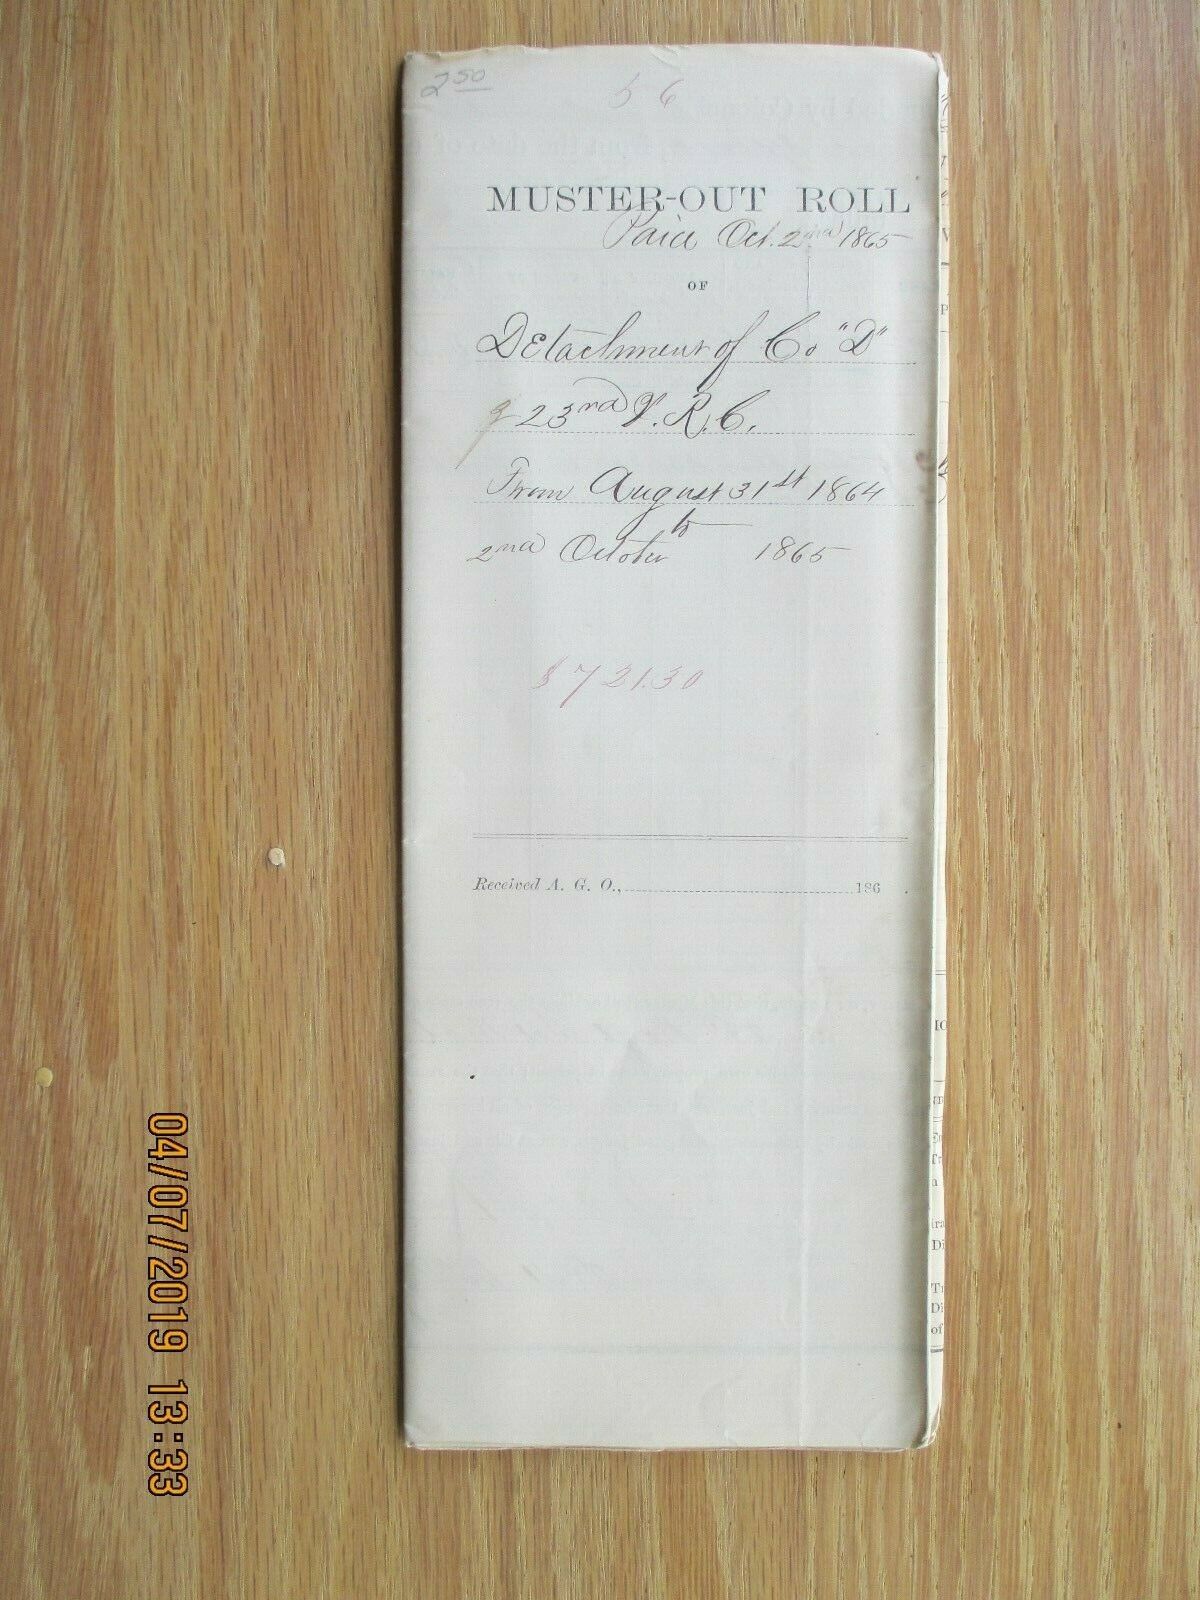 2 50
56
MUSTER-OUT ROLL
Paid Oct. 2nd 1865
OF
Detachment of Co "D"
23rd V. R. C.
From August 31st 1864
to
2nd October 1865
$721.30
Received A. G. O., 186 .
04/07/2019 13:33